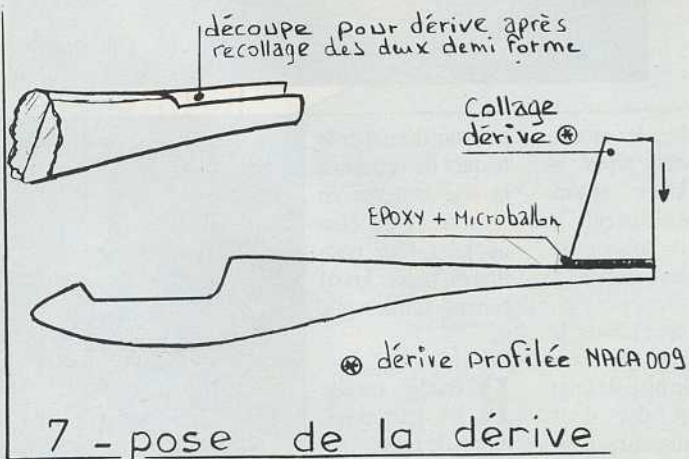 découpe pour dérive après
recollage des deux demi forme
Collage
dérive ⊛
EPOXY + Microballon
⊛ dérive profilée NACA 009
7 - pose de la dérive